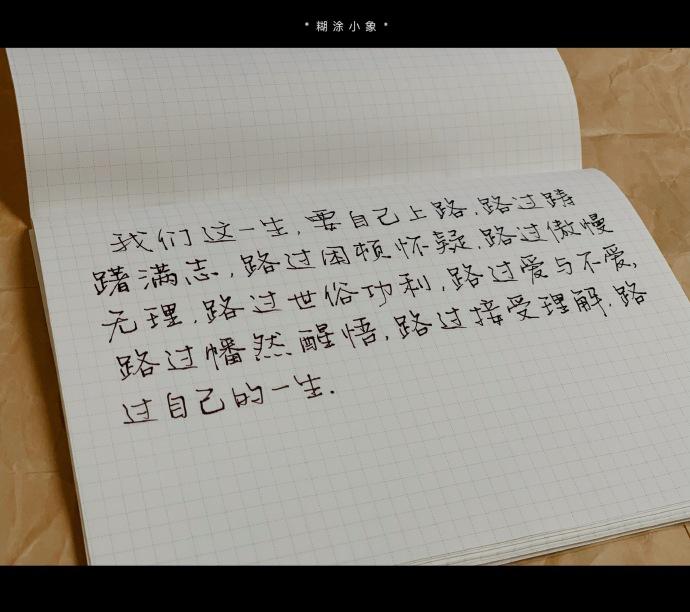 * 糊涂小象 *
我们这一生,要自己上路,路过踌
躇满志,路过困顿怀疑,路过傲慢
无理,路过世俗功利,路过爱与不爱,
路过幡然醒悟,路过接受理解,路
过自己的一生.